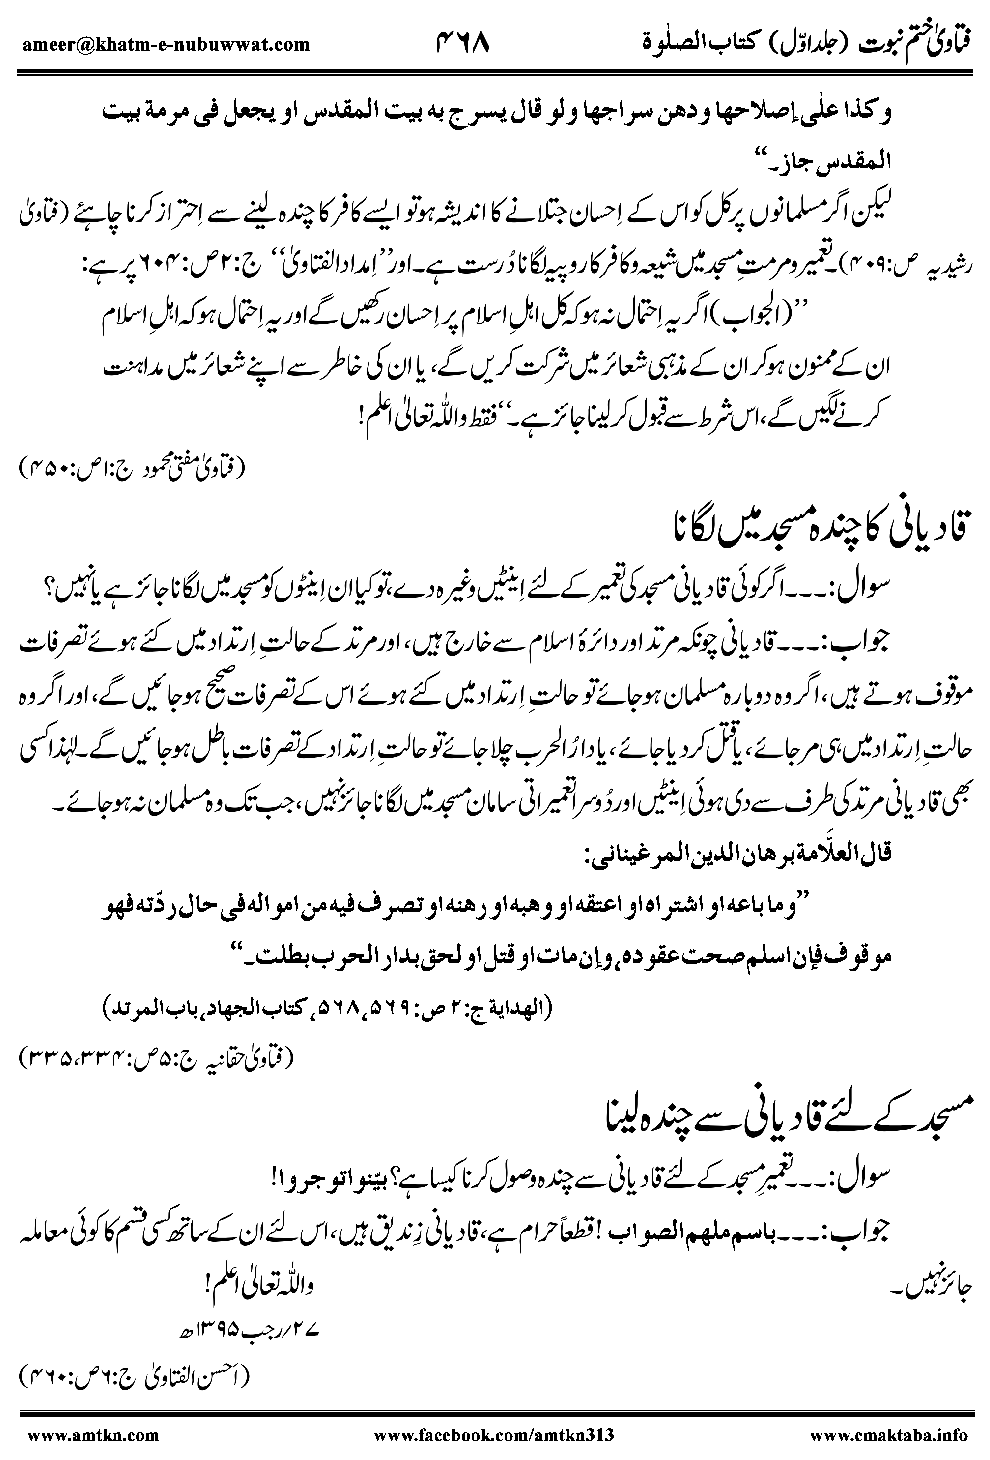 فتاویٰ ختم نبوت (جلد اوّل) کتاب الصلٰوة ۴۶۸ ameer@khatm-e-nubuwwat.com
وکذا علٰی إصلاحھا ودھن سراجھا ولو قال یسرج به بیت المقدس او یجعل فی مرمة بیت
المقدس جاز۔‘‘
لیکن اگر مسلمانوں پر کل کو اس کے اِحسان جتلانے کا اندیشہ ہو تو ایسے کافر کا چندہ لینے سے اِحتراز کرنا چاہئے (فتاویٰ
رشیدیہ ص:۴۰۹)۔ تعمیر و مرمتِ مسجد میں شیعہ و کافر کا روپیہ لگانا دُرست ہے۔ اور ’’اِمداد الفتاویٰ‘‘ ج:۲ ص:۶۰۴ پر ہے:
’’(الجواب) اگر یہ اِحتمال نہ ہو کہ کل اہلِ اسلام پر اِحسان رکھیں گے اور یہ اِحتمال ہو کہ اہلِ اسلام
ان کے ممنون ہوکر ان کے مذہبی شعائر میں شرکت کریں گے، یا ان کی خاطر سے اپنے شعائر میں مداہنت
کرنے لگیں گے، اس شرط سے قبول کرلینا جائز ہے۔‘‘ فقط واللہ تعالیٰ اعلم!
(فتاویٰ مفتی محمود ج:۱ ص:۴۵۰)
قادیانی کا چندہ مسجد میں لگانا
سوال:۔۔۔ اگر کوئی قادیانی مسجد کی تعمیر کے لئے اِینٹیں وغیرہ دے، تو کیا ان اِینٹوں کو مسجد میں لگانا جائز ہے یا نہیں؟
جواب:۔۔۔ قادیانی چونکہ مرتد اور دائرۂ اسلام سے خارج ہیں، اور مرتد کے حالتِ اِرتداد میں کئے ہوئے تصرفات
موقوف ہوتے ہیں، اگر وہ دوبارہ مسلمان ہوجائے تو حالتِ اِرتداد میں کئے ہوئے اس کے تصرفات صحیح ہوجائیں گے، اور اگر وہ
حالتِ اِرتداد میں ہی مرجائے، یا قتل کردیا جائے، یا دارُ الحرب چلا جائے تو حالتِ اِرتداد کے تصرفات باطل ہوجائیں گے۔ لہٰذا کسی
بھی قادیانی مرتد کی طرف سے دی ہوئی اِینٹیں اور دُوسرا تعمیراتی سامان مسجد میں لگانا جائز نہیں، جب تک وہ مسلمان نہ ہوجائے۔
قال العلَّامة برھان الدین المرغینانی:
’’وما باعه او اشتراه او اعتقه او وھبه او رھنه او تصرف فیه من امواله فی حال ردّته فھو
موقوف فإن اسلم صحت عقوده، وإن مات او قتل او لحق بدار الحرب بطلت۔‘‘
(الھدایة ج:۲ ص:۵۶۸، ۵۶۹، کتاب الجھاد، باب المرتد)
(فتاویٰ حقانیہ ج:۵ ص:۳۳۴، ۳۳۵)
مسجد کے لئے قادیانی سے چندہ لینا
سوال:۔۔۔ تعمیرِ مسجد کے لئے قادیانی سے چندہ وصول کرنا کیسا ہے؟ بیّنوا توجروا!
جواب:۔۔۔ باسم ملھم الصواب! قطعاً حرام ہے، قادیانی زِندیق ہیں، اس لئے ان کے ساتھ کسی قسم کا کوئی معاملہ
جائز نہیں۔ واللہ تعالیٰ اعلم!
۲۷؍رجب ۱۳۹۵ھ
(اَحسن الفتاویٰ ج:۶ ص:۴۶۰)
www.amtkn.com www.facebook.com/amtkn313 www.cmaktaba.info